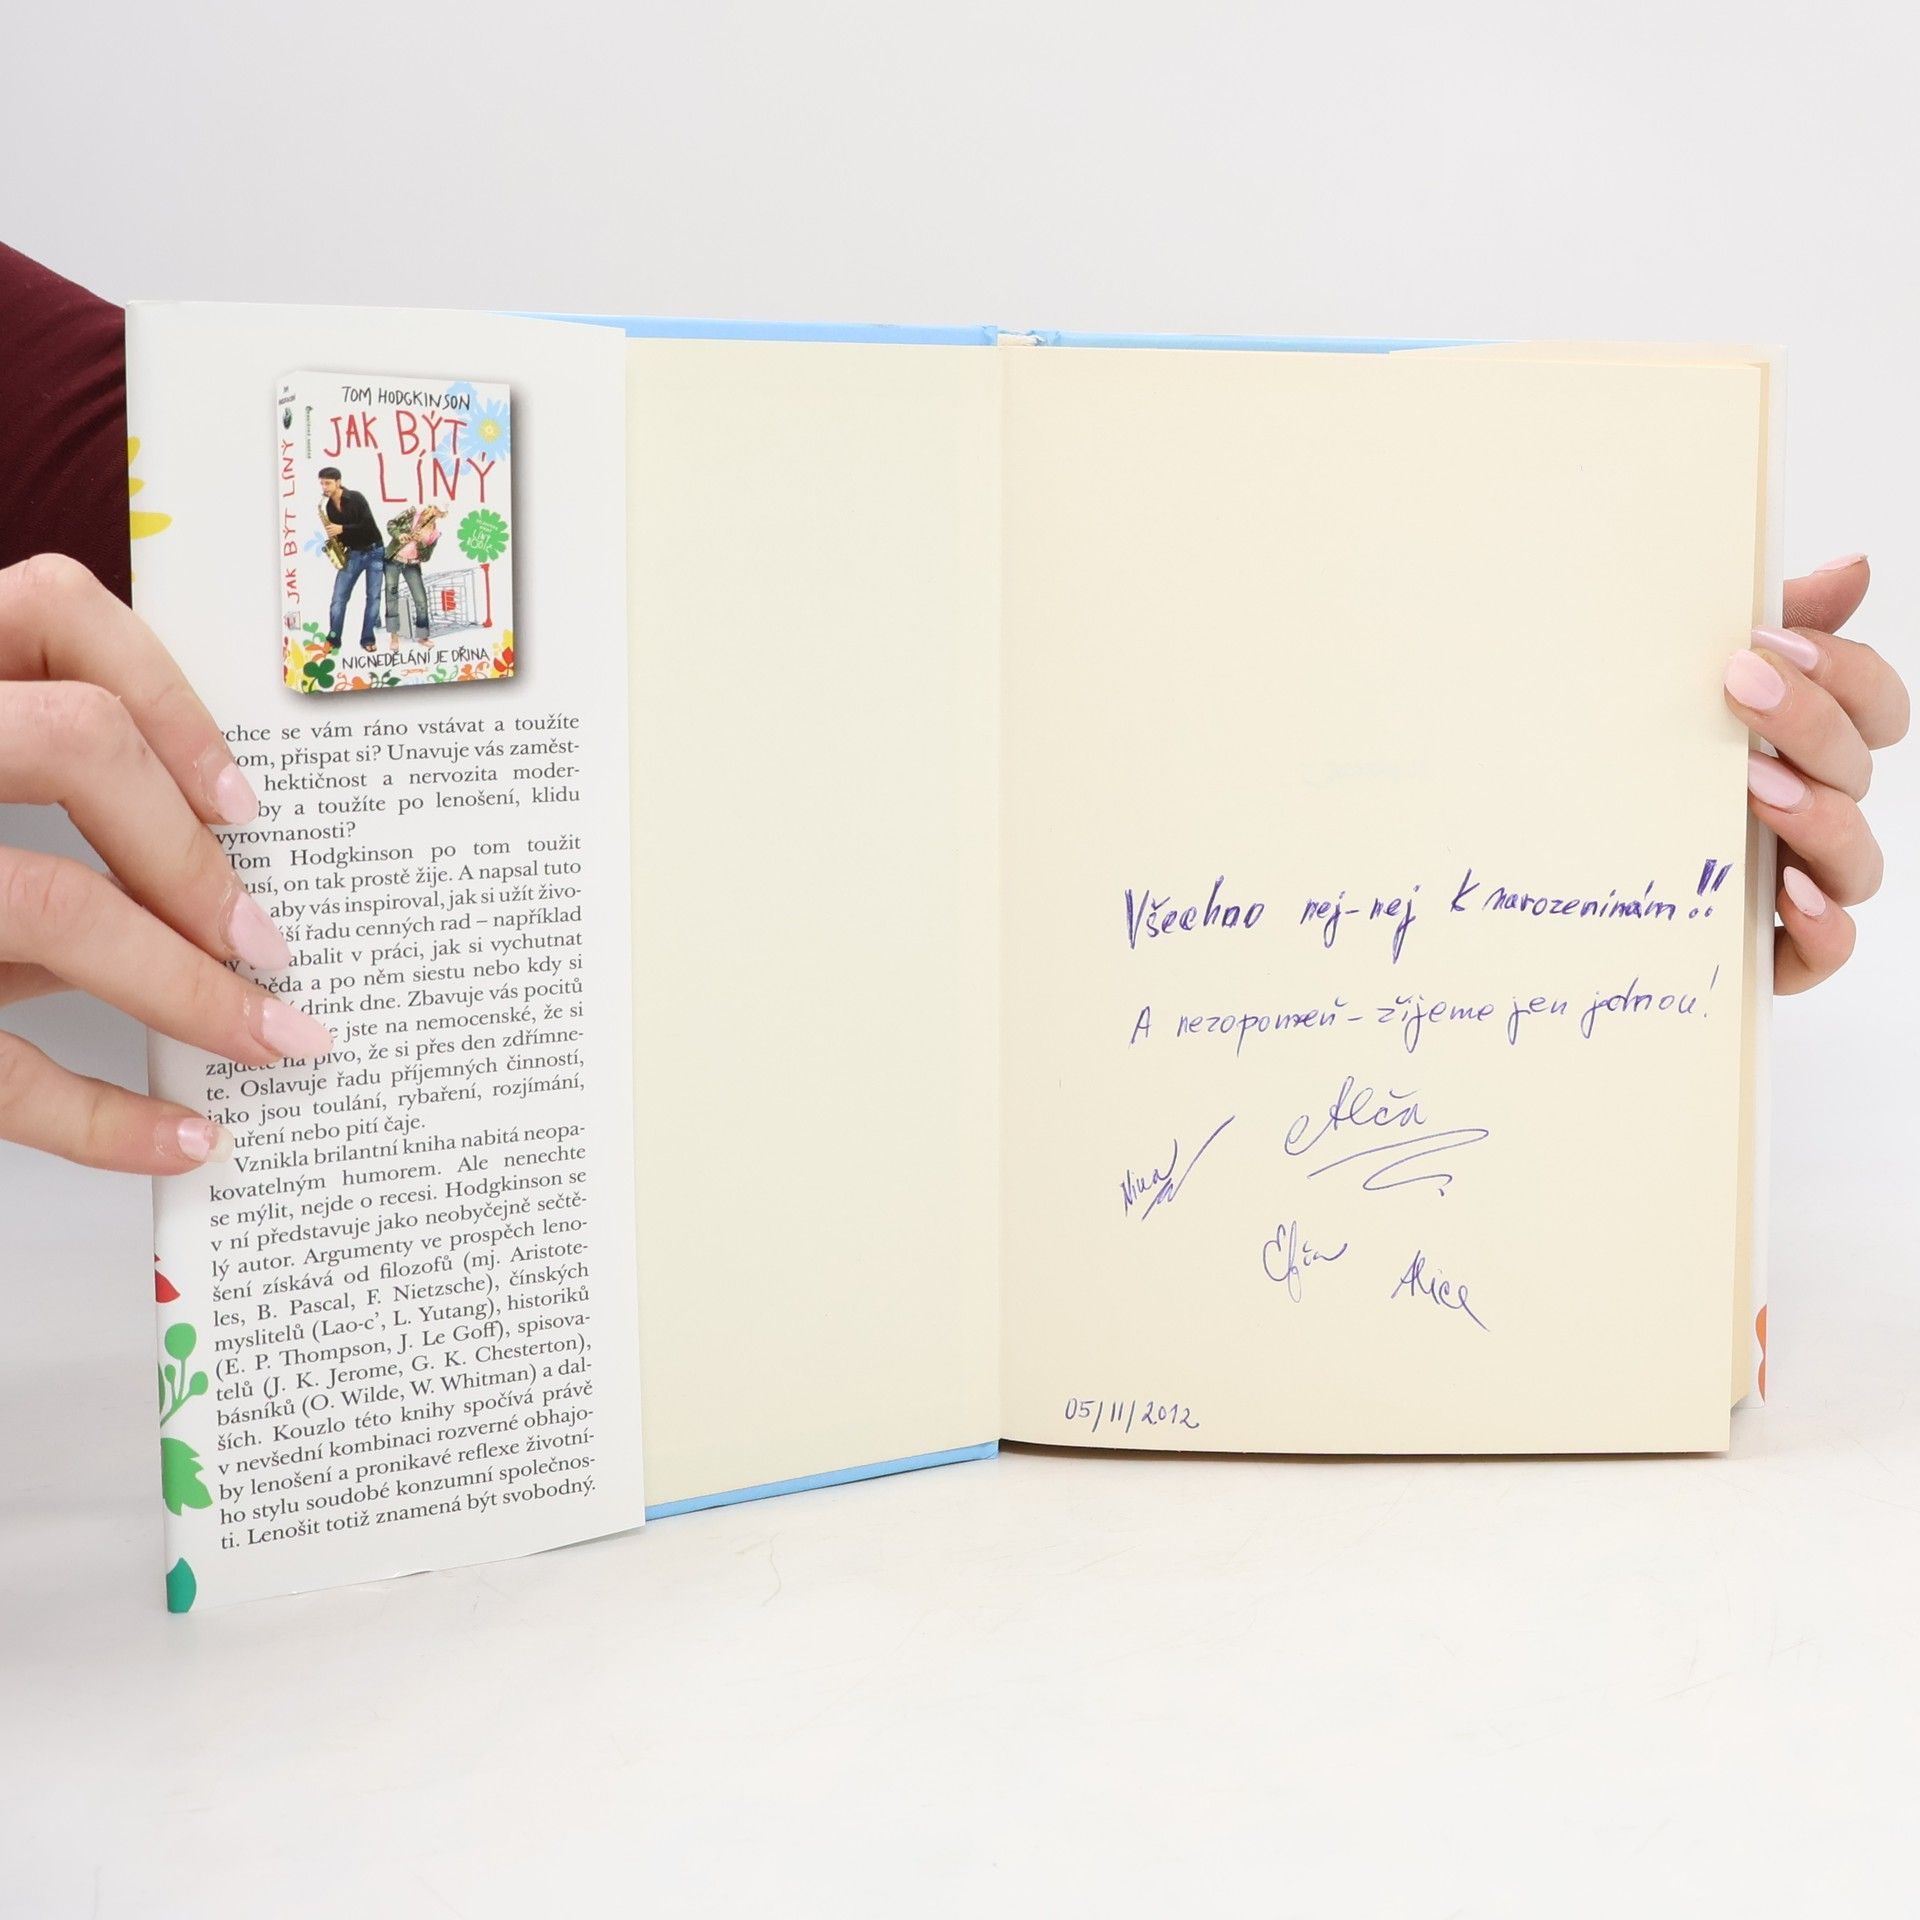 TOM HODGKINSON
JAK BÝT
LÍNÝ
JAK BÝT LÍNÝ
LÍNÝ
RODIČ
NICNEDĚLÁNÍ JE DŘINA
chce se vám ráno vstávat a toužíte
om, přispat si? Unavuje vás zaměst-
hektičnost a nervozita moder-
by a toužíte po lenošení, klidu
vyrovnanosti?
Tom Hodgkinson po tom toužit
usí, on tak prostě žije. A napsal tuto
aby vás inspiroval, jak si užít živo-
ší řadu cenných rad – například
abalit v práci, jak si vychutnat
běda a po něm siestu nebo kdy si
drink dne. Zbavuje vás pocitů
e jste na nemocenské, že si
zajdete na pivo, že si přes den zdřímne-
te. Oslavuje řadu příjemných činností,
jako jsou toulání, rybaření, rozjímání,
uření nebo pití čaje.
Vznikla brilantní kniha nabitá neopa-
kovatelným humorem. Ale nenechte
se mýlit, nejde o recesi. Hodgkinson se
v ní představuje jako neobyčejně sečtě-
lý autor. Argumenty ve prospěch leno-
šení získává od filozofů (mj. Aristote-
les, B. Pascal, F. Nietzsche), čínských
myslitelů (Lao-c’, L. Yutang), historiků
(E. P. Thompson, J. Le Goff), spisova-
telů (J. K. Jerome, G. K. Chesterton),
básníků (O. Wilde, W. Whitman) a dal-
ších. Kouzlo této knihy spočívá právě
v nevšední kombinaci rozverné obhajo-
by lenošení a pronikavé reflexe životní-
ho stylu soudobé konzumní společnos-
ti. Lenošit totiž znamená být svobodný.
Všechno nej-nej k narozeninám!!
A nezopomeň – žijeme jen jednou!
Alča
Nina
Alice
05/11/2012